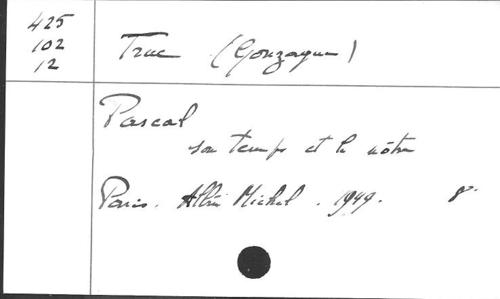 425
102
12
Truc (Gonzague)
Pascal
son temps et le nôtre
Paris. Albin Michel. 1949. 8°